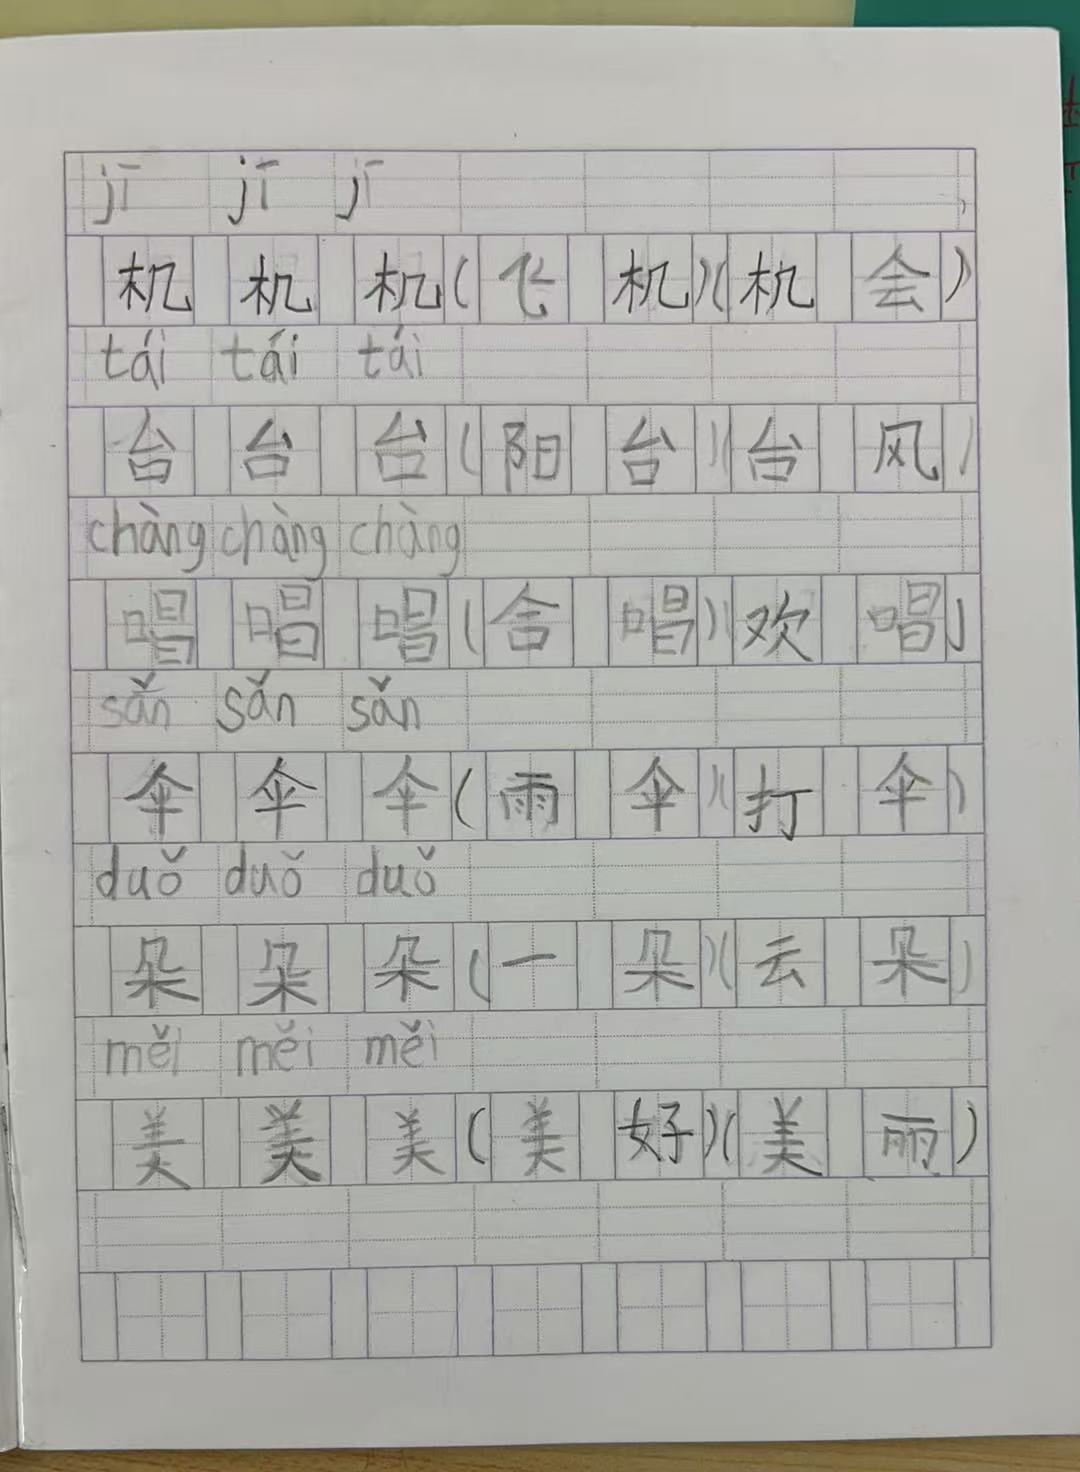 jī jī jī
机 机 机(飞 机)(机 会)
tái tái tái
台 台 台(阳 台)(台 风)
chàng chàng chàng
唱 唱 唱(合 唱)(欢 唱)
sǎn sǎn sǎn
伞 伞 伞(雨 伞)(打 伞)
duǒ duǒ duǒ
朵 朵 朵(一 朵)(云 朵)
měi měi měi
美 美 美(美 好)(美 丽)